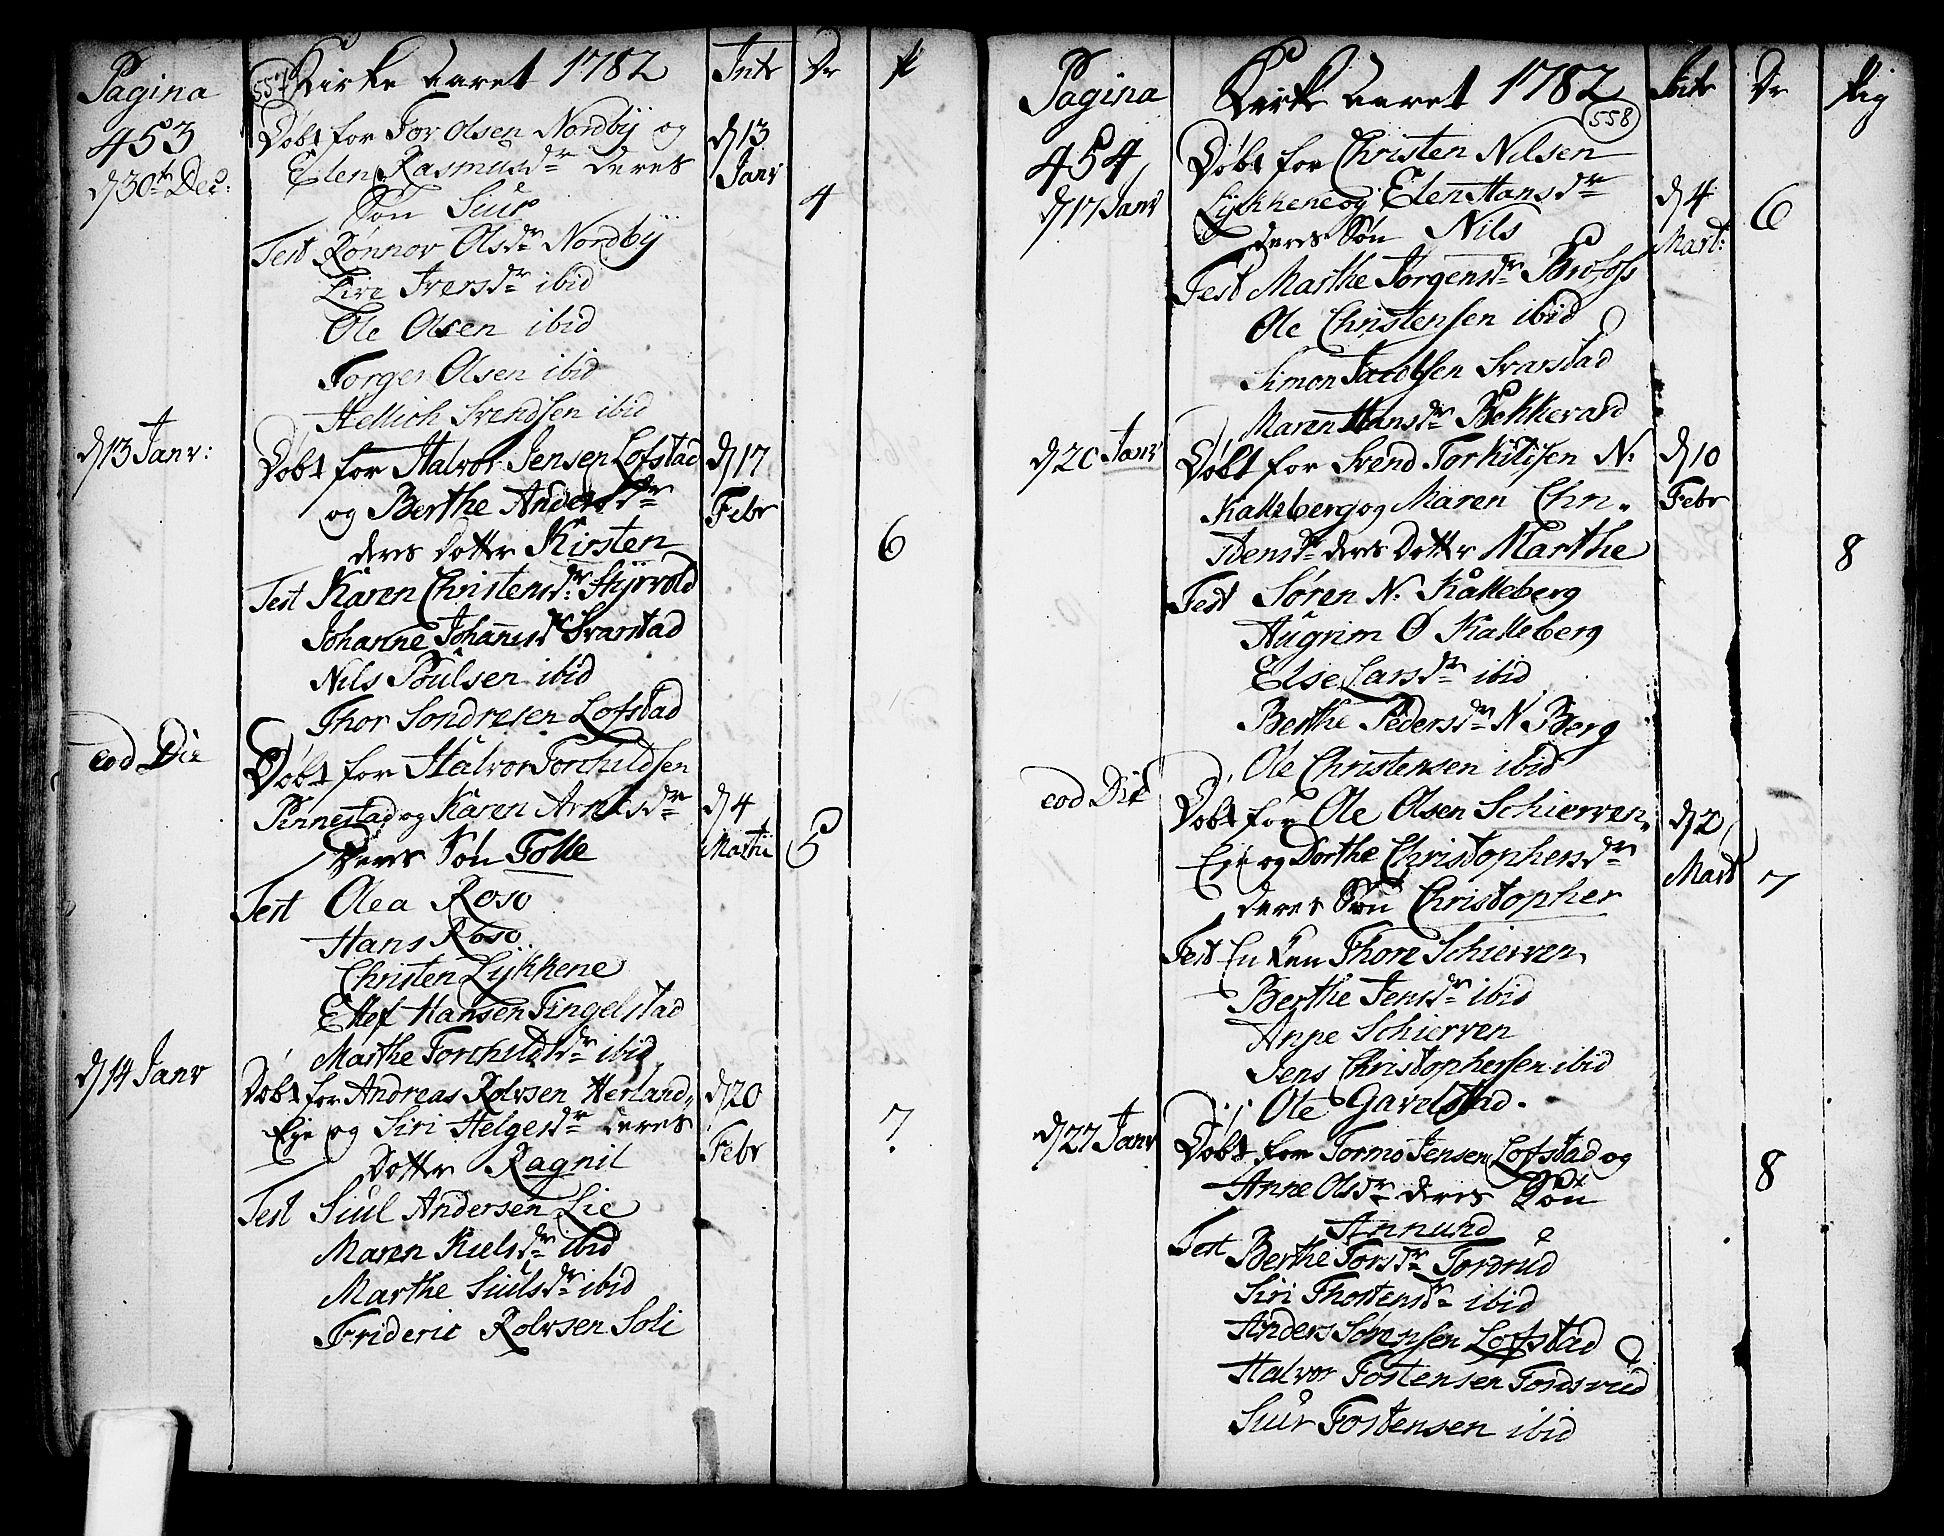 Pagina 557 Kirke Aaret 1782 Intr Dr P
453
d 30te Dec:
Døbt for Tor Olsen Nordby og
d 13
Elen Rasmusdr deres
Janv
Søn Siur
4
Test Rønnov Olsdr Nordbÿ
Live Iversdr ibid
Ole Olsen ibid
Torger Olsen ibid
Hellich Svendsen ibid
d 13 Janv:
Døbt for Halvor Jensen Lofstad
d 17
og Berthe Andersdr
Febr
deres Dotter Kirsten
6
Test Karen Christensdr Styrvold
Johanne Johannisdr Svarstad
Nils Poulsen ibid
Thor Sondresen Lofstad
eod Die
Døbt for Halvor Torchildsen
Pinnestad og Karen Arnesdr
d 4
Deres Søn Tolle
Martii
5
Test Olea Roso
Hans Roso
Christen Lykkene
Ellef Hansen Tingelstad
Marthe Torchildsdr ibid
d 14 Janv
Døbt for Andreas Rolvsen Herland,
d 20
Eje og Siri Helgesdr deres
Febr
7
Dotter Ragnil
Test Siul Andersen Lie
Maren Kielsdr ibid
Marthe Siulsdr ibid
Frideric Rolvsen Soli
Pagina Kirke Aaret 1782 558 Intr Dr Pig
454
d 17 Janv
Døbt for Christen Nilsen
Lykkene og Elen Hansdr
d 4
6
deres Søn Nils
Mart:
Test Marthe Jørgensdr Brofoss
Ole Christensen ibid
Simon Jacobsen Svarstad
Maren Hansdr Bekkevard
d 20 Janv
Døbt for Svend Torkildsen N:
d 10
Kalleberg og Maren Chri-
Febr
stensdr deres Dotter Marthe
8
Test Søren N: Kalleberg
Augrim Ø Kalleberg
Else Larsdr ibid
Berthe Pedersdr N Berg
Ole Christensen ibid
eod Die
Døbt for Ole Olsen Schierven,
d 2
Eje og Dorthe Christophersdr
Mart
7
deres Søn Christopher
Test Enken Thore Schierven
Berthe Jensdr ibid
Anne Schierven
Jens Christophersen ibid
Ole Gavelstad.
d 27 Janv
Døbt for Tormo Jensen Lofstad og
8
Anne Olsdr deres Søn
Annund
Test Berthe Torsdr Tordrud
Siri Thostensdr ibid
Anders Sørensen Lofstad
Halvor Tostensen Tordsrud
Siur Tostensen ibid